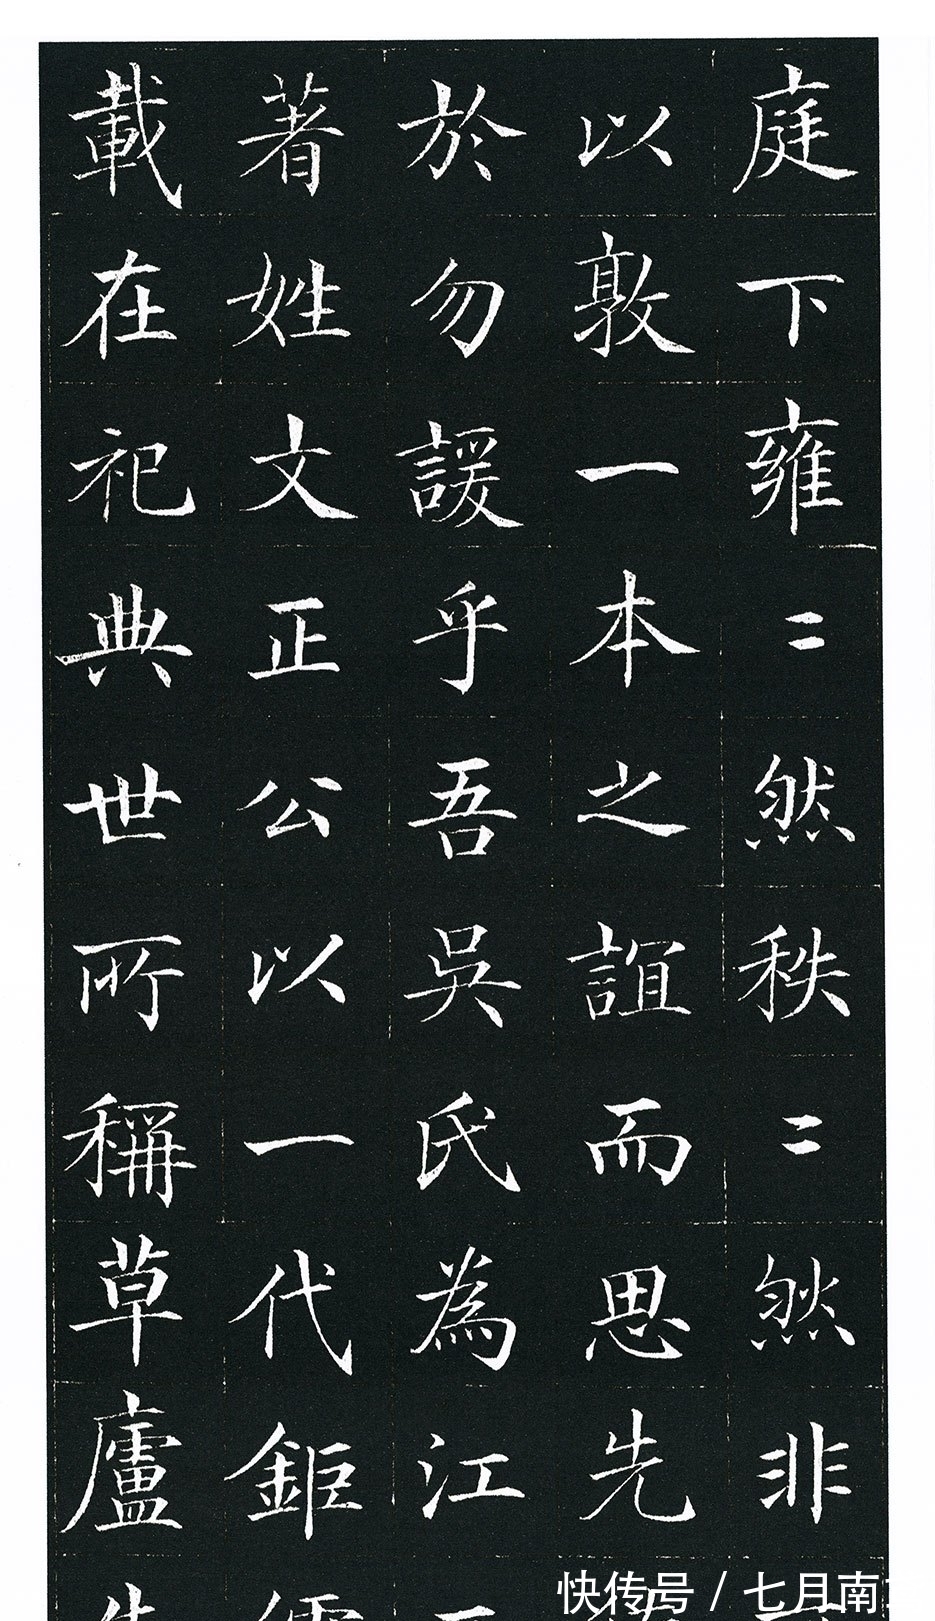 庭下雍〻然秩〻然非
以敦一本之誼而思先
於勿諼乎吾吳氏為江
著姓文正公以一代鉅儒
載在祀典世所稱草廬先
快传号 / 七月南